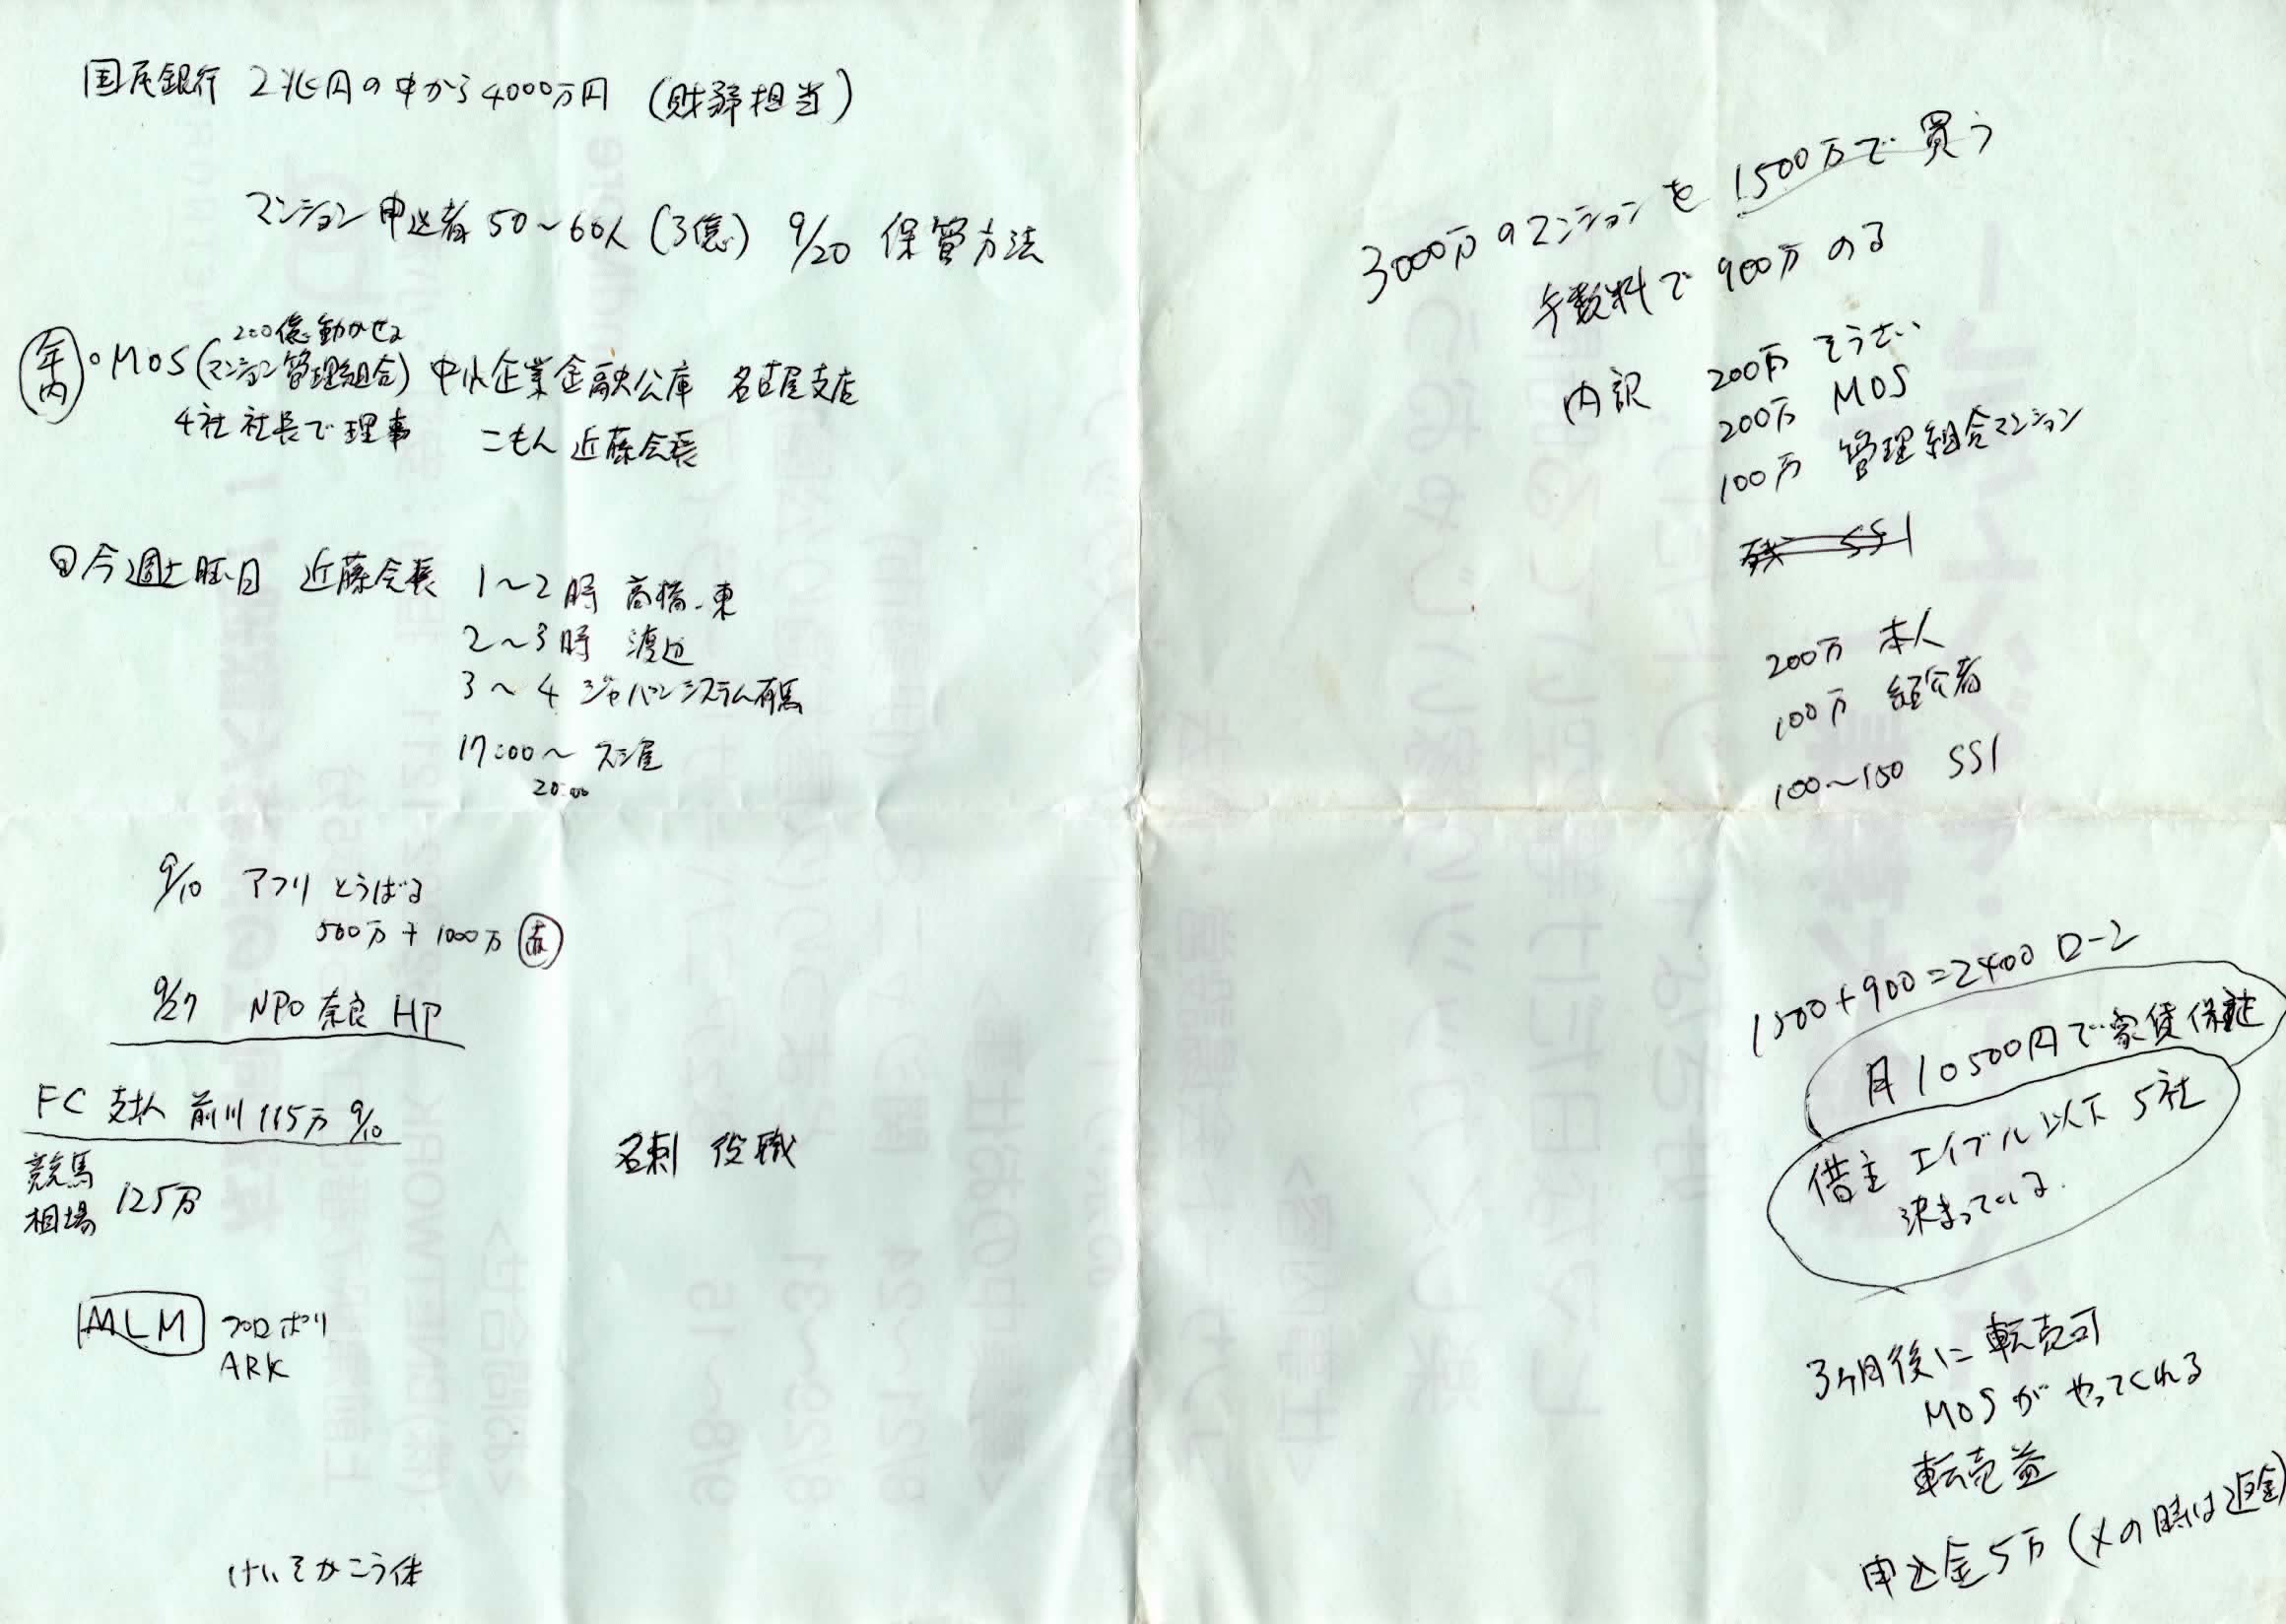 国民銀行 2兆円の中から4000万円 (財務担当)
マンション申込者 50～60人 (3億) 9/20 保管方法
200億動かせる
年内 ○MOS (マンション管理組合) 中小企業金融公庫 名古屋支店
4社 社長で理事 こもん 近藤会長
今週土曜日 近藤会長 1～2時 高橋、東
2～3時 渡辺
3～4 ジャパンシステム有馬
17:00～ スシ屋
20:00
9/10 アフリ とうばる
500万+1000万
9/27 NPO 奈良 HP
FC 支払 前川 115万 9/10
競馬
相場 125万
名刺 役職
MLM プロポリ
ARK
けいそかこう体
3000万のマンションを 1500万で買う
手数料で 900万 のる
内訳 200万 そうさい
200万 MOS
100万 管理組合マンション
残 SSI
200万 本人
100万 紹介者
100～150 SSI
1500+900=2400 ローン
月10500円で家賃保証
借主 エイブル以下 5社
決まっている.
3ヶ月後に転売可
MOSが やってくれる
転売益
申込金5万 (メの時は返金)